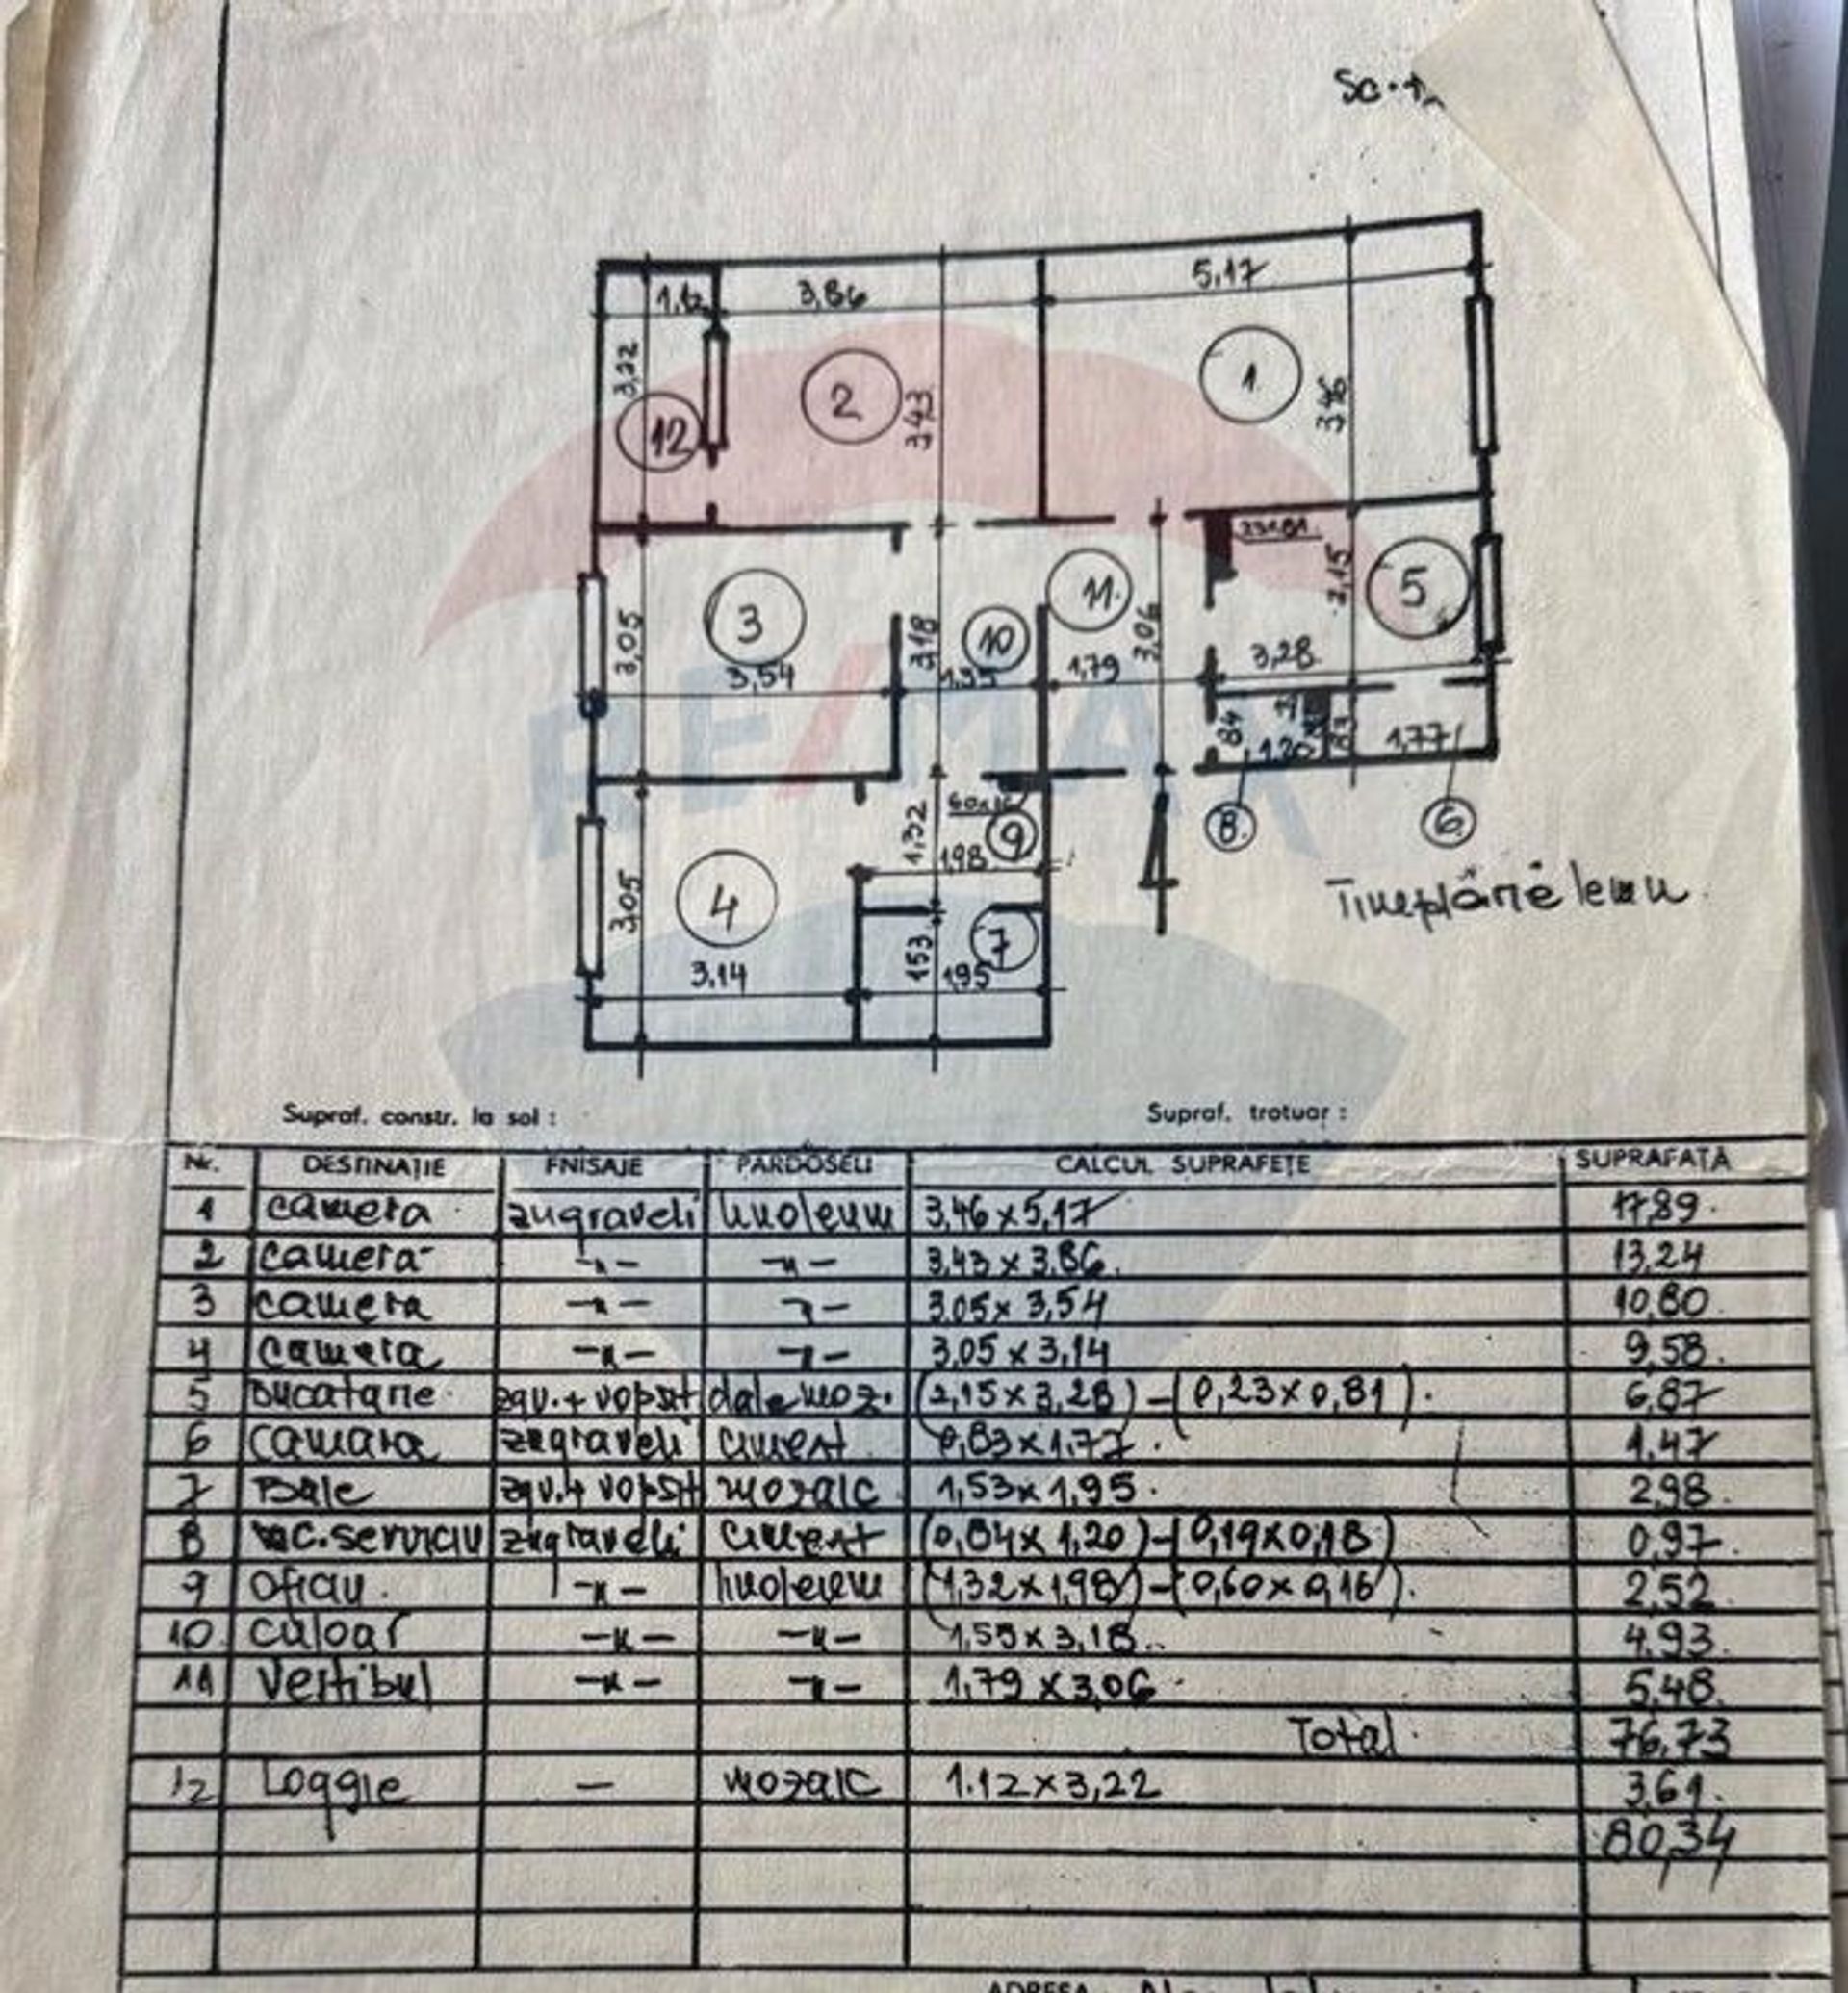 Sc. 1
1,12 3,86 5,17
3,22 12 2 3,43 1 3,46
23x81
3 3,05 3,54 3,18 10 1,55 11. 1,79 3,06 2,15 5 3,28
84 1,20 83 1,77
60x16 9 1,32 1,98 8. 6.
4 3,05 3,14 7 1,53 1,95
Timplărie lemn
RE/MAX
Supraf. constr. la sol : Supraf. trotuar :
Nr. DESTINAȚIE FNISAJE PARDOSELI CALCUL SUPRAFEȚE SUPRAFAȚĂ
1 camera zugraveli linoleum 3,46 x 5,17 17,89.
2 camera -"- -"- 3,43 x 3,86. 13,24
3 camera -"- -"- 3,05 x 3,54 10,80.
4 camera -"- -"- 3,05 x 3,14 9,58.
5 bucatarie zgv. + vopsit dale moz. (2,15 x 3,28) - (0,23 x 0,81). 6,87
6 camara zugraveli ciment 0,83 x 1,77. 1,47
7 Baie zgv. + vopsit mozaic 1,53 x 1,95. 2,98.
8 wc. serviciu zugraveli ciment (0,84 x 1,20) - (0,19 x 0,18) 0,97.
9 oficiu. -"- linoleum (1,32 x 1,98) - (0,60 x 0,16). 2,52
10 culoar -"- -"- 1,55 x 3,18.. 4.93.
11 Vestibul -"- -"- 1,79 x 3,06 5,48.
Total. 76,73
12 Loggie — mozaic 1.12 x 3,22 3,61.
80,34
ADRESA: